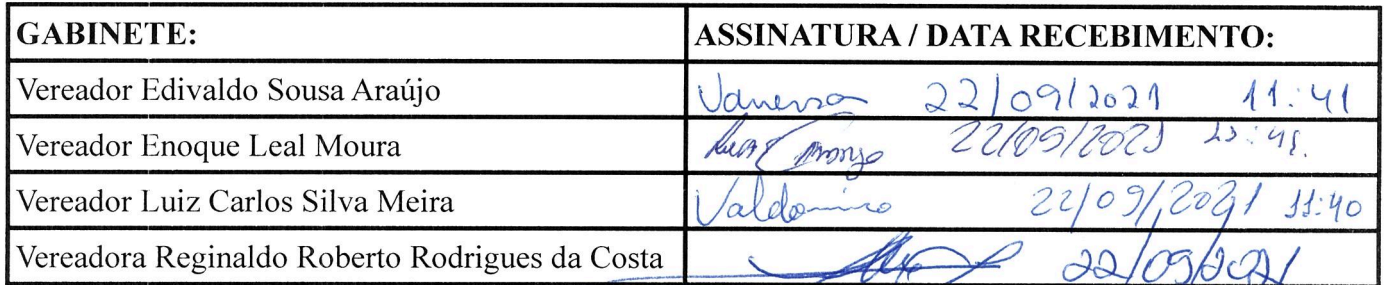 GABINETE: ASSINATURA / DATA RECEBIMENTO:
Vereador Edivaldo Sousa Araújo Vanessa 22/09/2021 11:41
Vereador Enoque Leal Moura 22/09/2021
Vereador Luiz Carlos Silva Meira Valdomiro 22/09/2021 11:40
Vereadora Reginaldo Roberto Rodrigues da Costa 22/09/2021